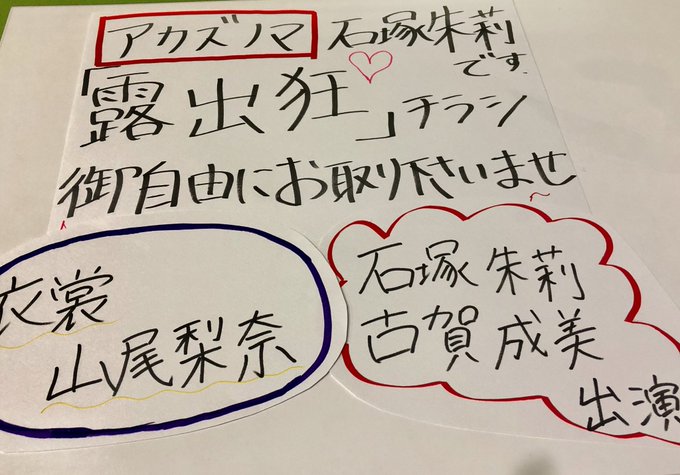 アカズノマ 石塚朱莉
です
「露出狂」チラシ
御自由にお取り下さいませ
衣裳
山尾梨奈
石塚朱莉
古賀成美
出演